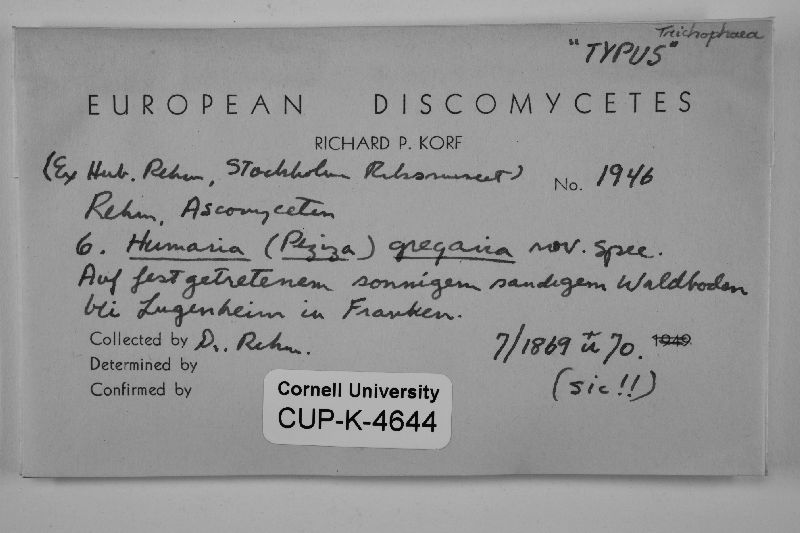 Trichophaea
"TYPUS"
EUROPEAN DISCOMYCETES
RICHARD P. KORF
(Ex Hub. Rehm, Stockholm Riksmuseet) No. 1946
Rehm, Ascomyceten
6. Humaria (Peziza) gregaria nov. spec.
Auf festgetretenem sonnigem sandigem Waldboden
bei Lugenheim in Franken.
Collected by Dr. Rehm. 7/1869 u 70. 1949
Determined by (sic!!)
Confirmed by
Cornell University
CUP-K-4644